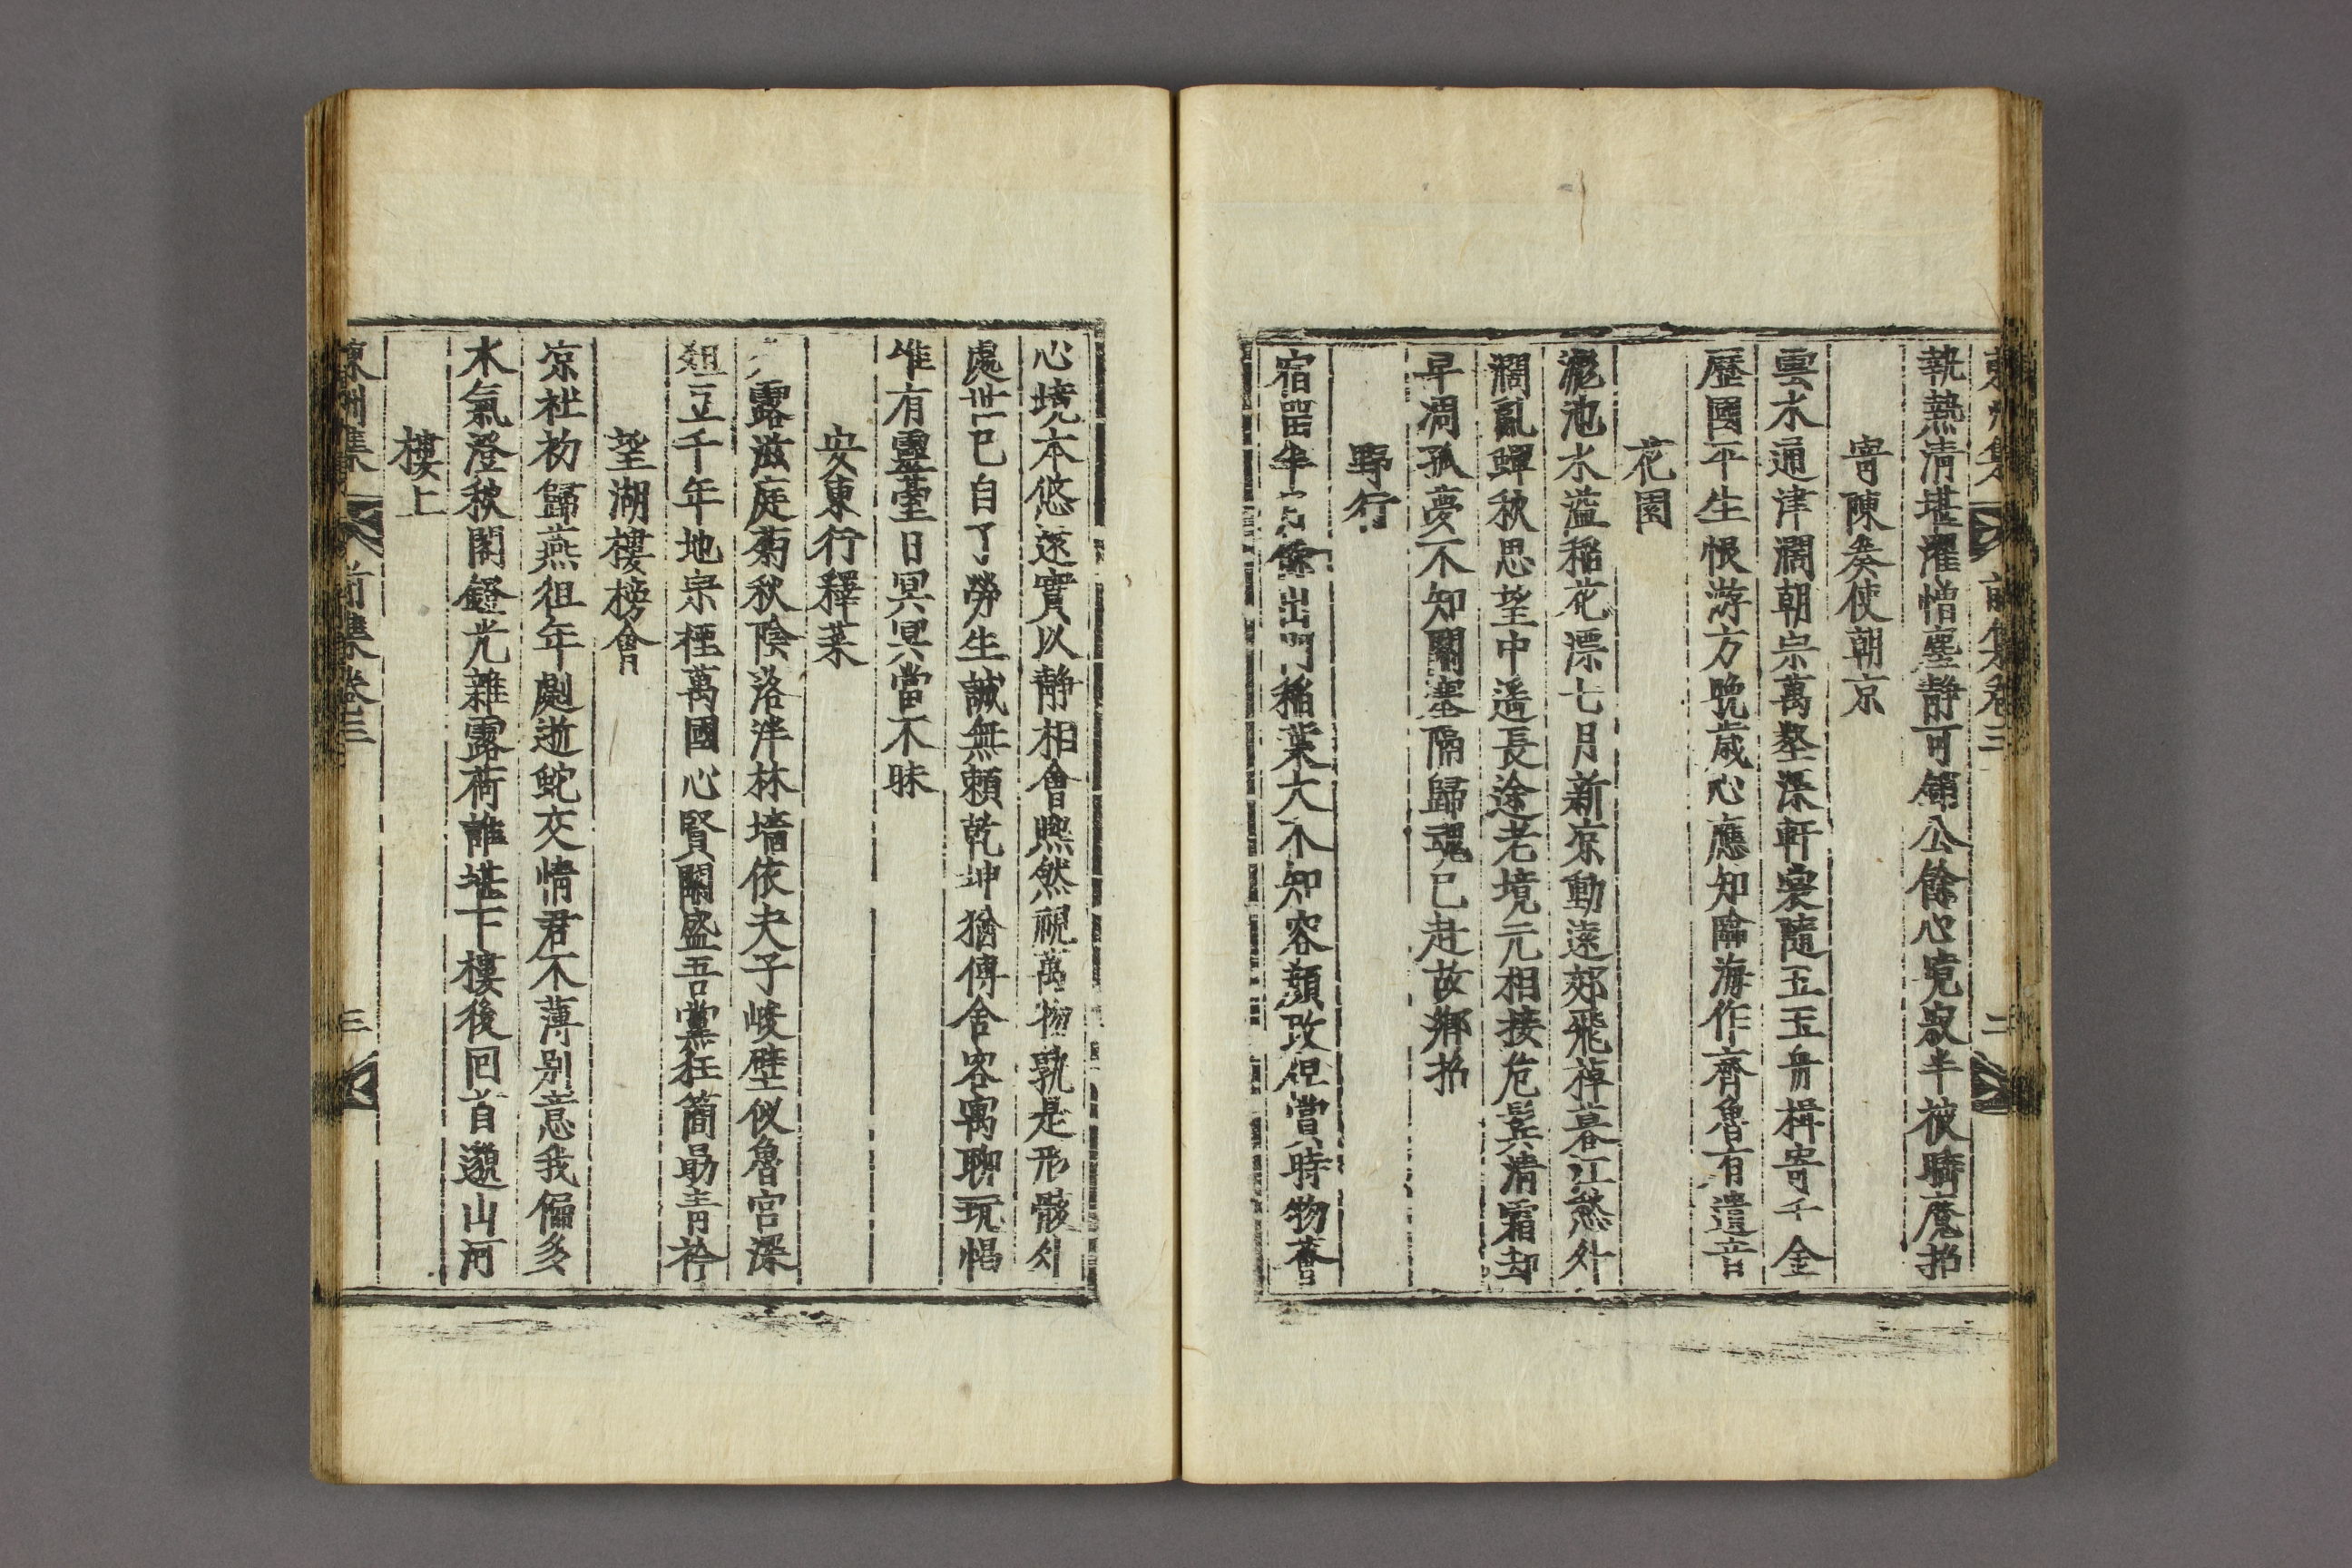 東州集 前集卷三 二
執熱清堪濯憎塵靜可鎖公餘心境寂半夜騎鹿招
寄陳奏使朝京
雲水通津濶朝宗萬壑深軒裳隨玉玉舟楫寄千金
歷國平生恨游方晩歲心應知臨海作齊魯有遺音
花園
滮池水溢稻花漂七月新凉動遠郊飛棹暮江愁外
濶亂蟬秋思望中遥長途老境元相接危鬂淸霜却
早凋孤夢不知關塞隔歸魂已赴故鄕招
野行
宿畱半 餘出門稻葉大不知容顏改但嘗時物薈
心境本悠遠實以靜相會熙然視萬物孰是形骸外
處世已自了勞生誠無賴乾坤猶傳舍客寓聊玩愒
唯有靈臺日冥冥當不昧
安東行釋菜
露滋庭菊秋陰洛泮林墻依夫子峻壁似魯宮深
俎豆千年地宗極萬國心賢關盛吾黨狂簡勗靑衿
望湖樓榜會
凉社初歸燕徂年劇逝蛇交情君不薄別意我偏多
水氣澄秋閣鐙光雜露荷誰堪下樓後回首邈山河
樓上
東州集 前集卷三 三